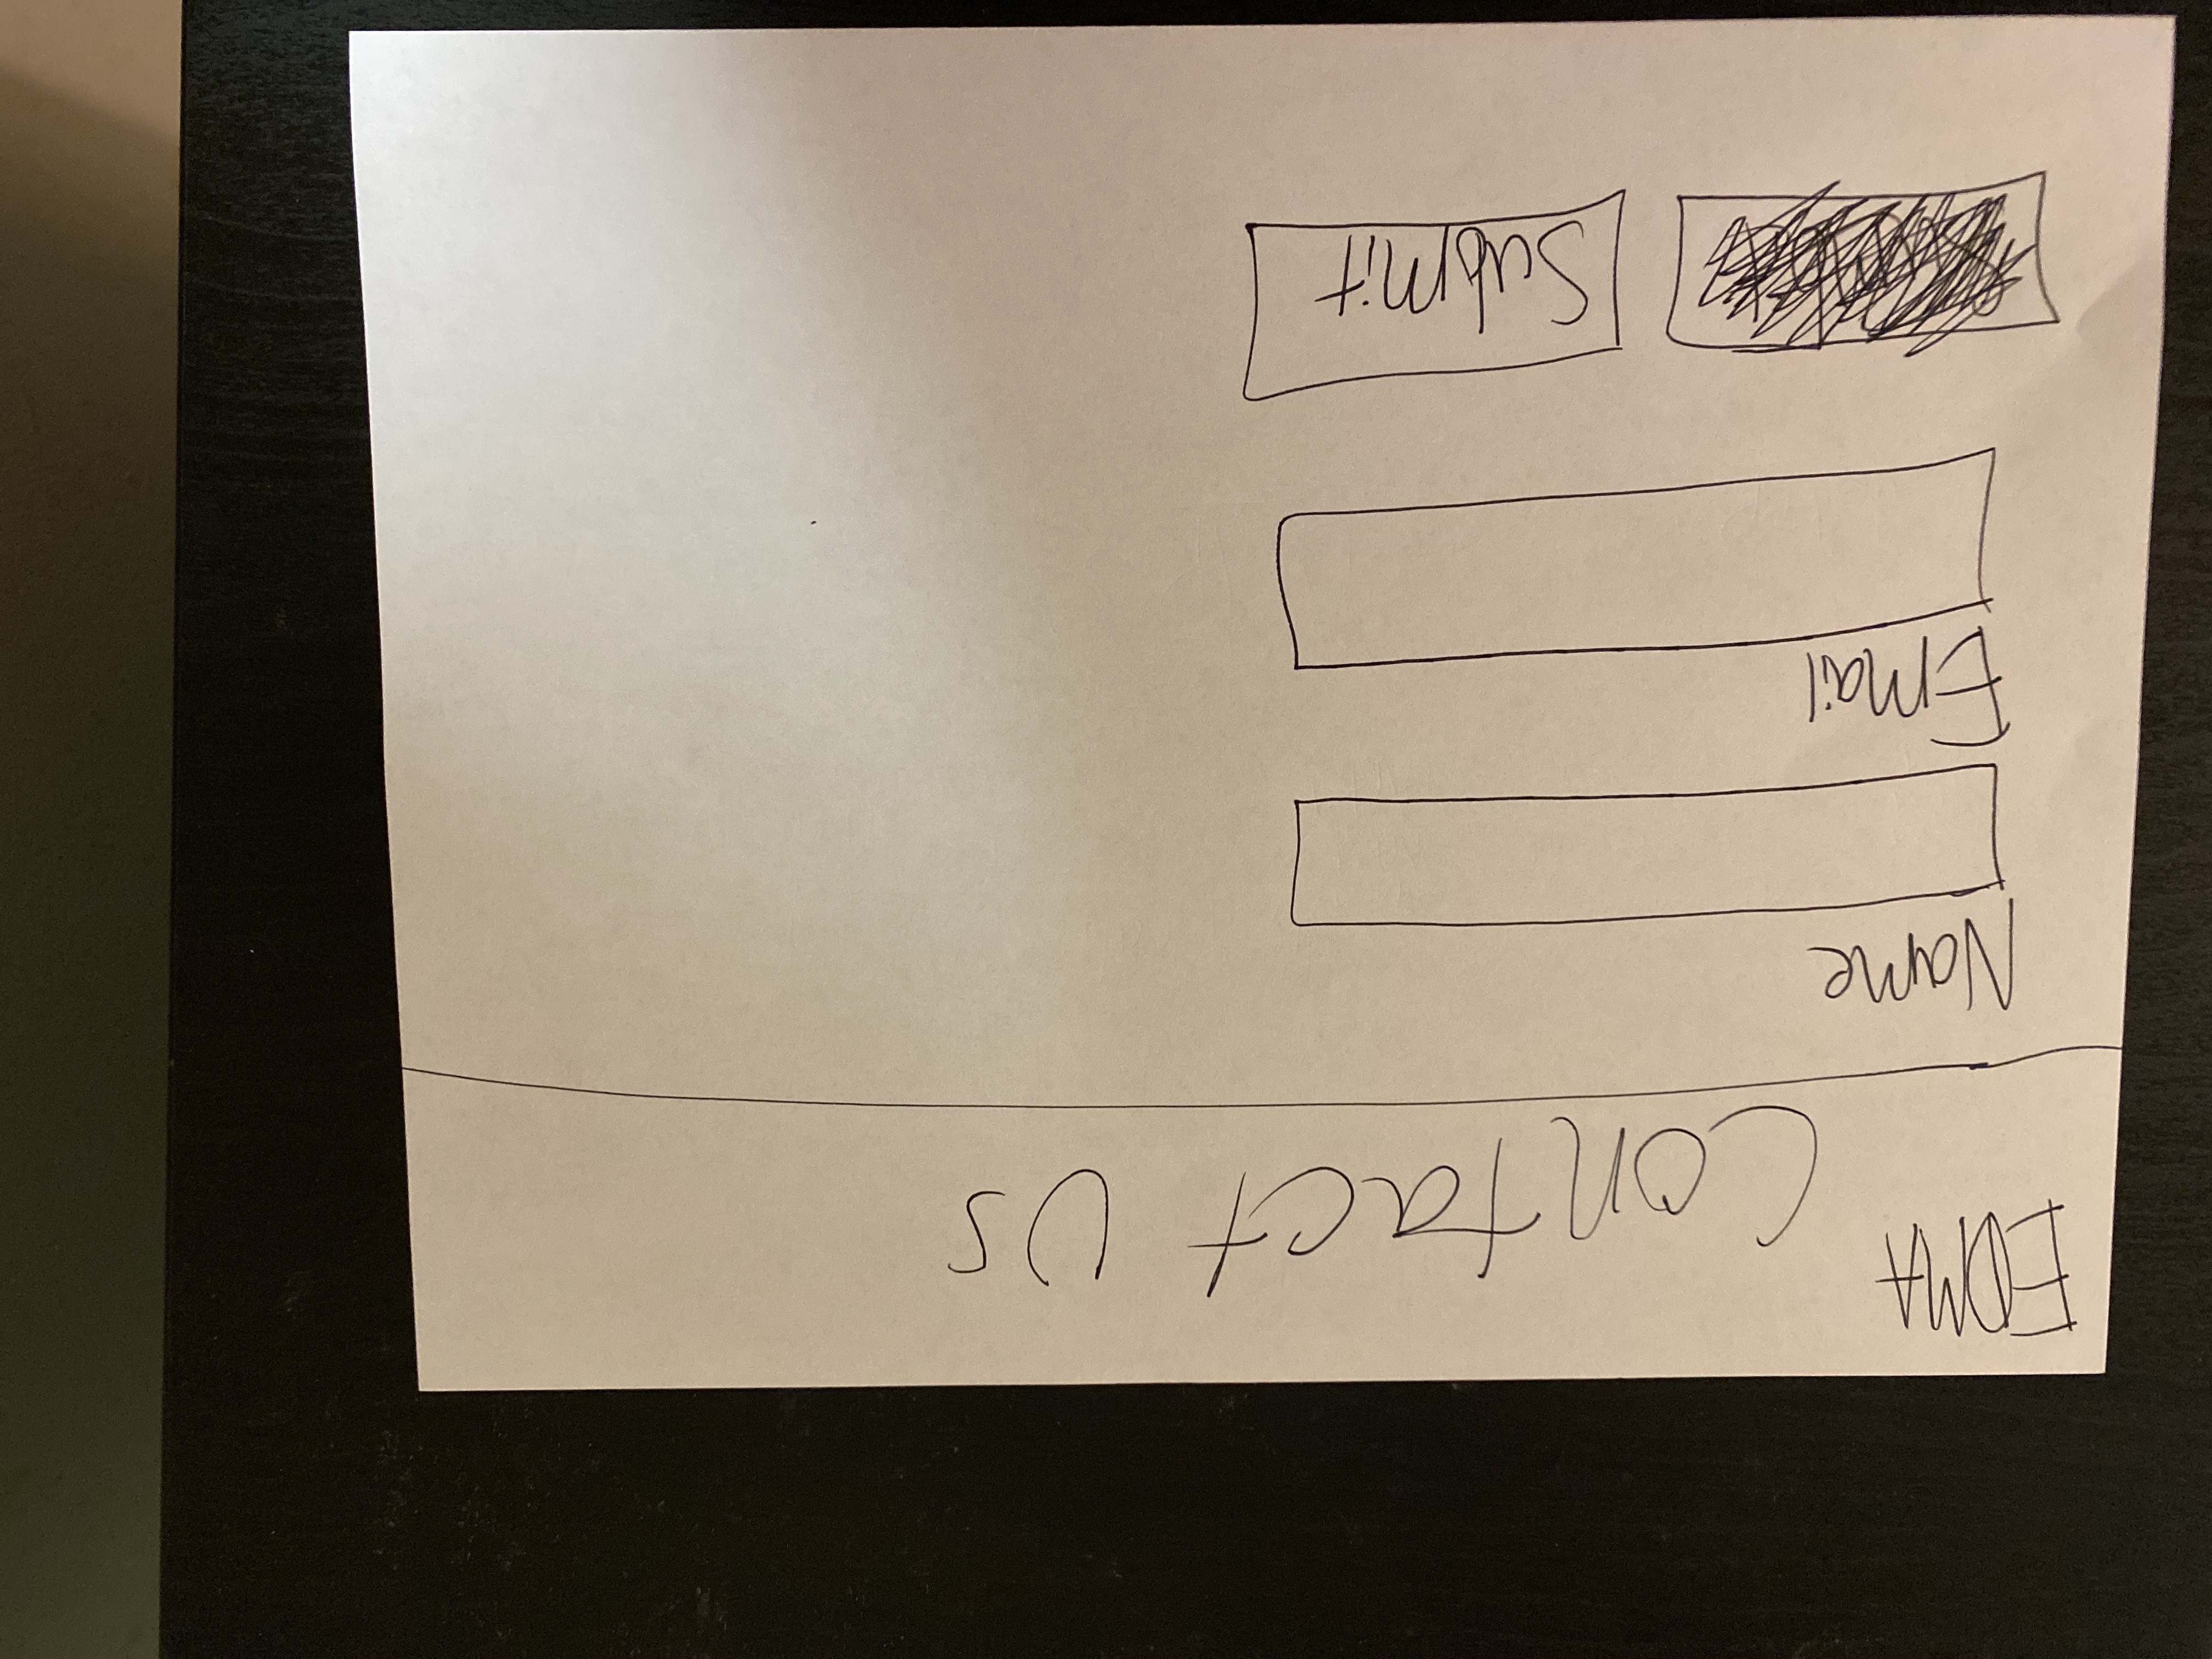 EDMA
Contact Us
Name
Email
Submit